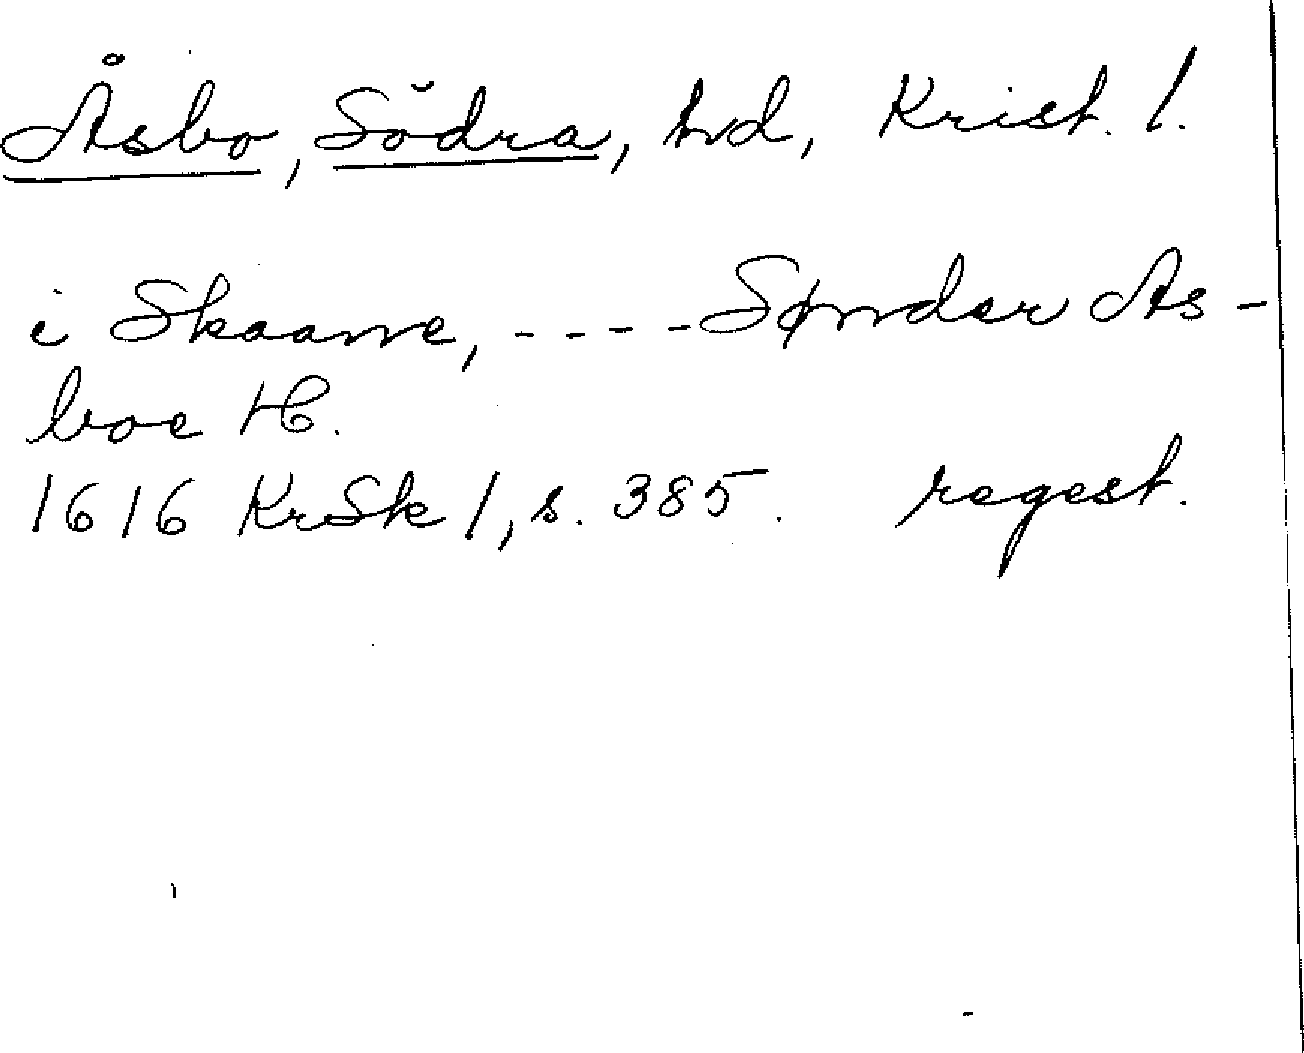 Åsbo, Södra, hd, Krist. l.
i Skaane, ---- Sønder As-
boe H.
1616 KrSk 1, s. 385. regest.